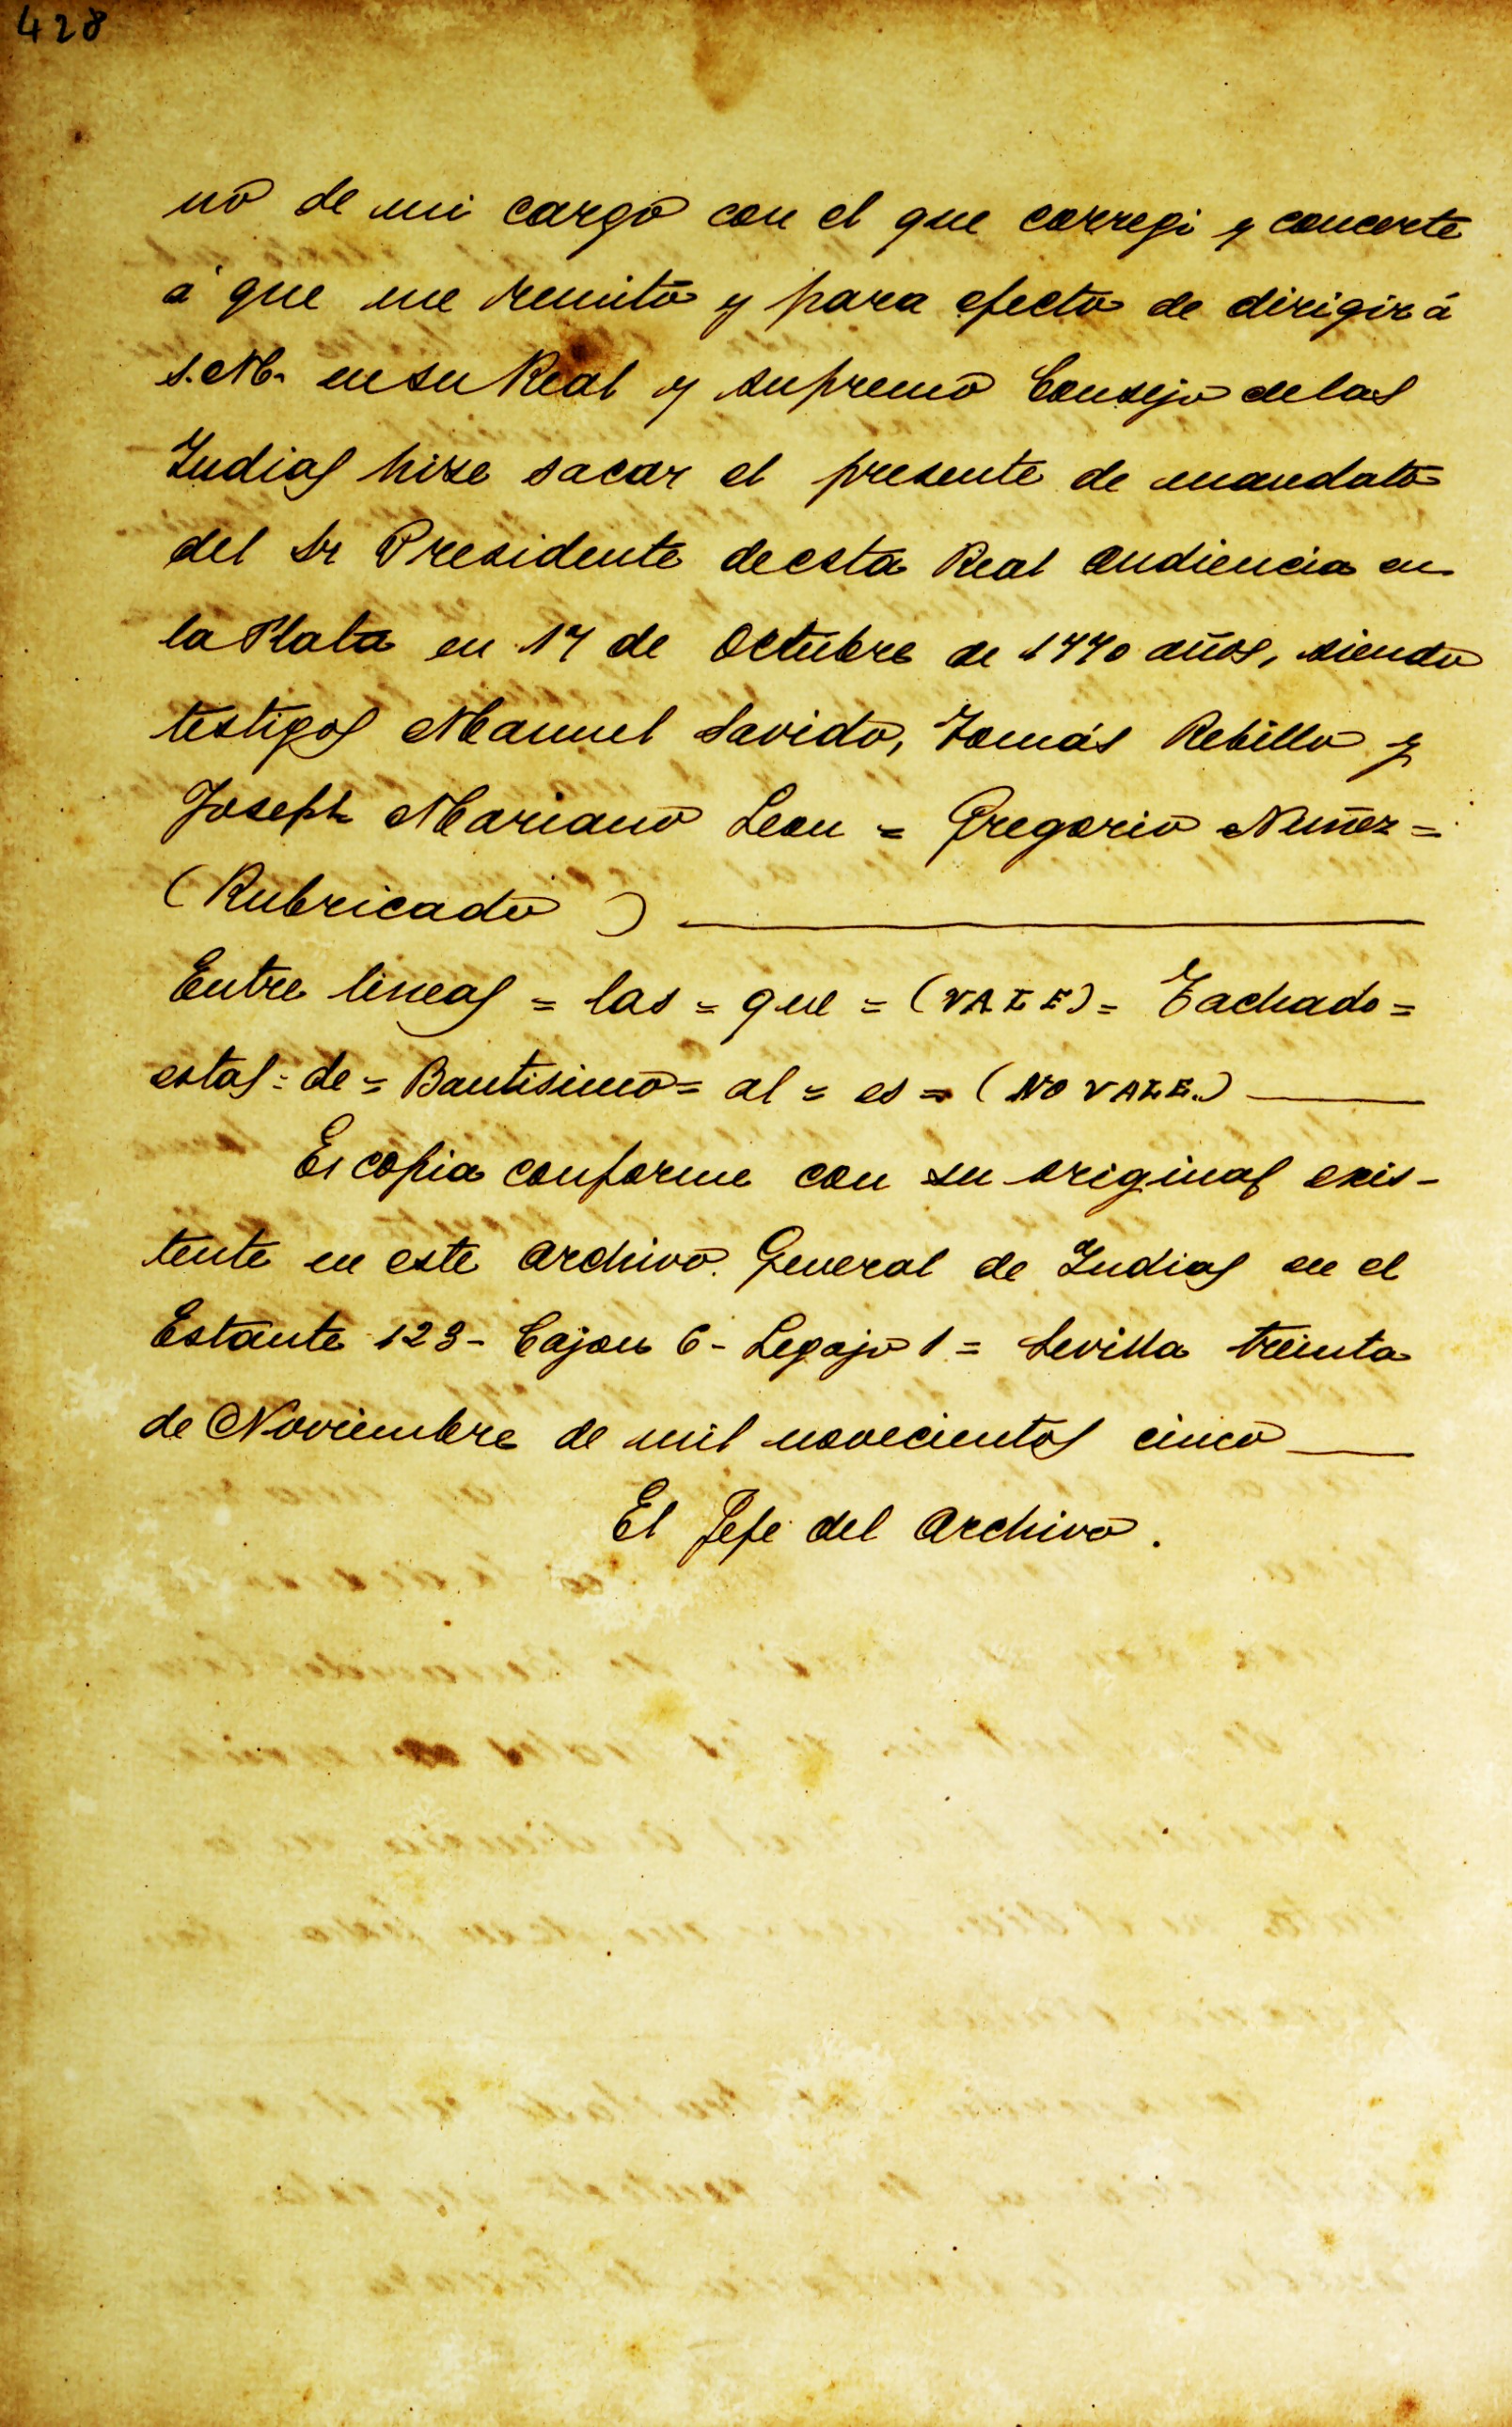 428
no de mi cargo con el que corregi y concerte
á que me remito y para efecto de dirigir á
S.M. en su Real y supremo Consejo de las
Indias hize sacar el presente de mandato
del Sr Presidente de esta Real audiencia en
la Plata en 17 de Octubre de 1770 años, siendo
testigos Manuel Savido, Tomás Rebillo y
Joseph Mariano Leon = Gregorio Nuñez =
(Rubricado)
Entre lineas = las = que = (VALE) = Tachado =
estas = de = Bautisimo = al = es = (NO VALE.)
Es copia conforme con su original exis-
tente en este archivo General de Indias en el
Estante 123 - Cajon 6 - Legajo 1 = Sevilla treinta
de Noviembre de mil novecientos cinco
El Jefe del archivo.